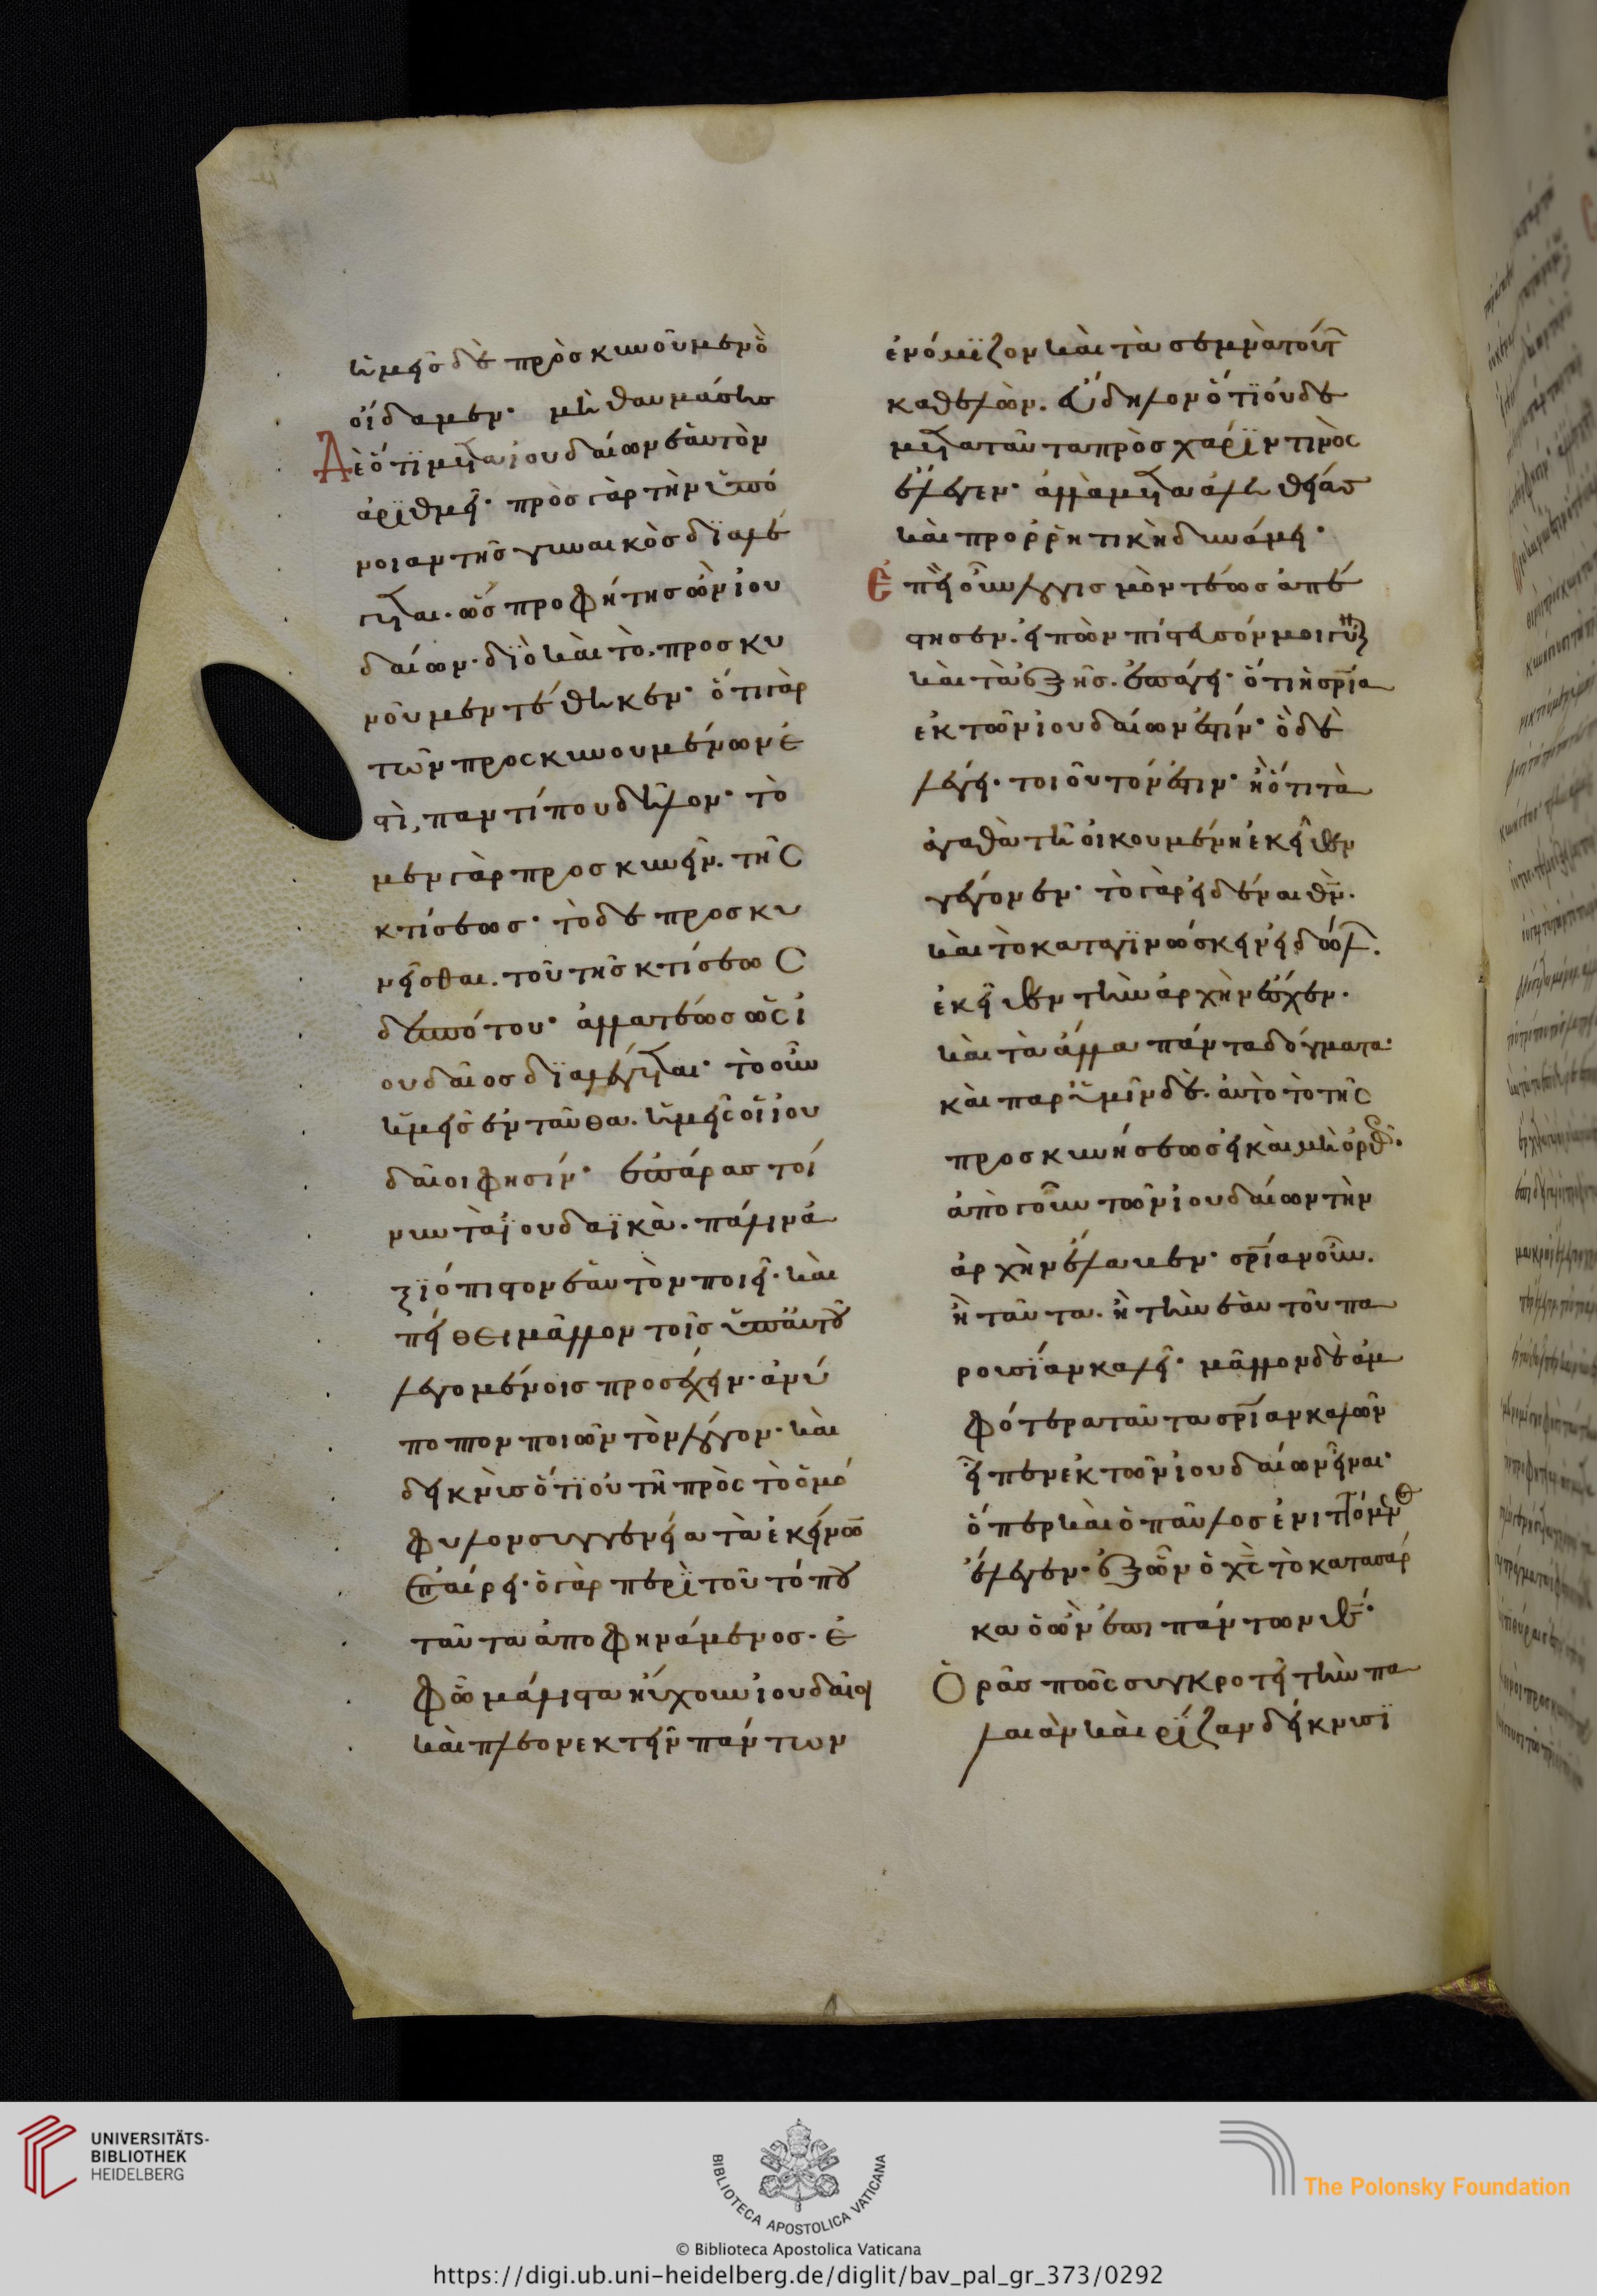 ἡμεῖς δὲ πρὸσκυνοῦμεν ὃ
οἴδαμεν· μὴ θαυμάσῃς
δὲ ὅτϊ μετα ἰουδαίων ἑαυτὸν
ἀρϊθμεῖ· πρὸς γὰρ τὴν ὑπό
νοιαν τῆς γυναικὸς δϊαλέ
γεται. ὡς προφήτης ὢν ἰου
δαίων· δϊὸ καὶ τὸ, προσκυ
νοῦμεν τέθηκεν· ὅτι γὰρ
τῶν προσκυνουμένων ἐ
στὶ, παντί που δῆλον· τὸ
μεν γὰρ προσκυνεῖν. τῆς
κτίσεως· τὸ δε προσκυ
νεῖσθαι. τοῦ τῆς κτίσεως
δεσπότου· ἀλλα τέως ὡς ἰ
ουδαῖος δϊαλέγεται· τὸ οὖν
ἡμεῖς ἐνταῦθα. ἡμεῖς οἵ ἰου
δαῖοι φησίν· ἐπάρας τοί
νυν τὰ ϊουδαϊκὰ. πάλιν ἀ
ξϊόπιστον ἑαυτὸν ποιεῖ· καὶ
πείθει μᾶλλον τοῖς ὑπ αὐτοῦ
λεγομένοις προσέχειν· ἀνύ
ποπτον ποιῶν τὸν λόγον· καὶ
δεικνὺς ὅτϊ οὐ τῇ πρὸς τὸ ὁμό
φυλον συγγενεία τὰ ἐκείνων
ἐπαίρει· ὁ γὰρ περϊ τοῦ τόπου
ταῦτα ἀποφηνάμενος. ἐ
φ ῶ μάλιστα ηὔχουν ἰουδαῖοι
καὶ πλεονεκτεῖν πάντων
ἐνόμϊζον καὶ τὰ σεμνὰ τούτων
καθελὼν. εὔδηλον ὅτϊ οὐδε
μετα ταῦτα πρὸς χαρϊν τινὸς
ἔλεγεν· ἀλλὰ μετα ἀληθείας
καὶ προρρητικῆ δυνάμει·
Ἐπεὶ οὖν λογισμὸν τέως ἀπέ
στησεν. εἰπὼν πίστευσόν μοι γύναι
καὶ τὰ ἑξῆς. ἐπάγει· ὅτι ἡ σρία
ἐκ τῶν ἰουδαίων ἐστίν· ὃ δὲ
λέγει· τοιοῦτόν ἐστιν· ἢ ὅτι τὰ
ἀγαθὰ τῆ οἰκουμένη ἐκεῖθεν
γέγονεν· τὸ γὰρ εἰδέναι θν.
καὶ τὸ καταγϊνώσκειν εἰδώλων.
ἐκεῖθεν τὴν ἀρχὴν ἔσχεν.
καὶ τὰ ἄλλα πάντα δόγματα·
καὶ παρ ὑμῖν δὲ. αὐτὸ τὸ τῆς
προσκυνήσεως εἰ καὶ μὴ ὀρθῶς.
ἀπὸ γοῦν τῶν ἰουδαίων τὴν
ἀρχὴν ἔλαβεν· σρίαν οὖν.
ἢ ταῦτα. ἢ τὴν ἑαυτοῦ πα
ρουσϊαν καλεῖ· μᾶλλον δὲ ἀμ
φότερα ταῦτα σρίαν καλῶν
ἥπερ ἐκ τῶν ἰουδαίων εἶναι·
ὅπερ καὶ ὁ παῦλος ἐνιττόμενος
ἔλεγεν· ἐξ ὧν ὁ χς τὸ κατα σάρ
κα ὁ ὢν ἐπι πάντων θς·
Ὁρᾶς πῶς συγκροτεῖ τὴν πα
λαιὰν καὶ ρϊζαν δείκνυσϊ
UNIVERSITÄTS-
BIBLIOTHEK
HEIDELBERG
BIBLIOTECA APOSTOLICA VATICANA
The Polonsky Foundation
© Biblioteca Apostolica Vaticana
https://digi.ub.uni-heidelberg.de/diglit/bav_pal_gr_373/0292